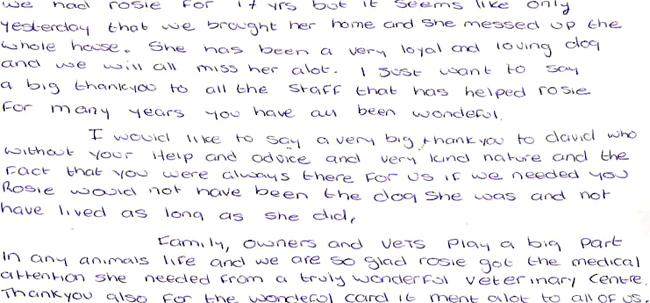 we had rosie for 17 yrs but it seems like only
yesterday that we brought her home and she messed up the
whole house. She has been a very loyal and loving dog
and we will all miss her alot. I just want to say
a big thankyou to all the staff that has helped rosie
for many years you have all been wonderful.
I would like to say a very big thank you to david who
without your Help and advice and very kind nature and the
fact that you were always there for us if we needed you
Rosie would not have been the dog she was and not
have lived as long as she did,
Family, owners and vets play a big part
In any animals life and we are so glad rosie got the medical
attention she needed from a truly wonderful veterinary centre.
Thankyou also for the wonderful card it ment alot to all of us.